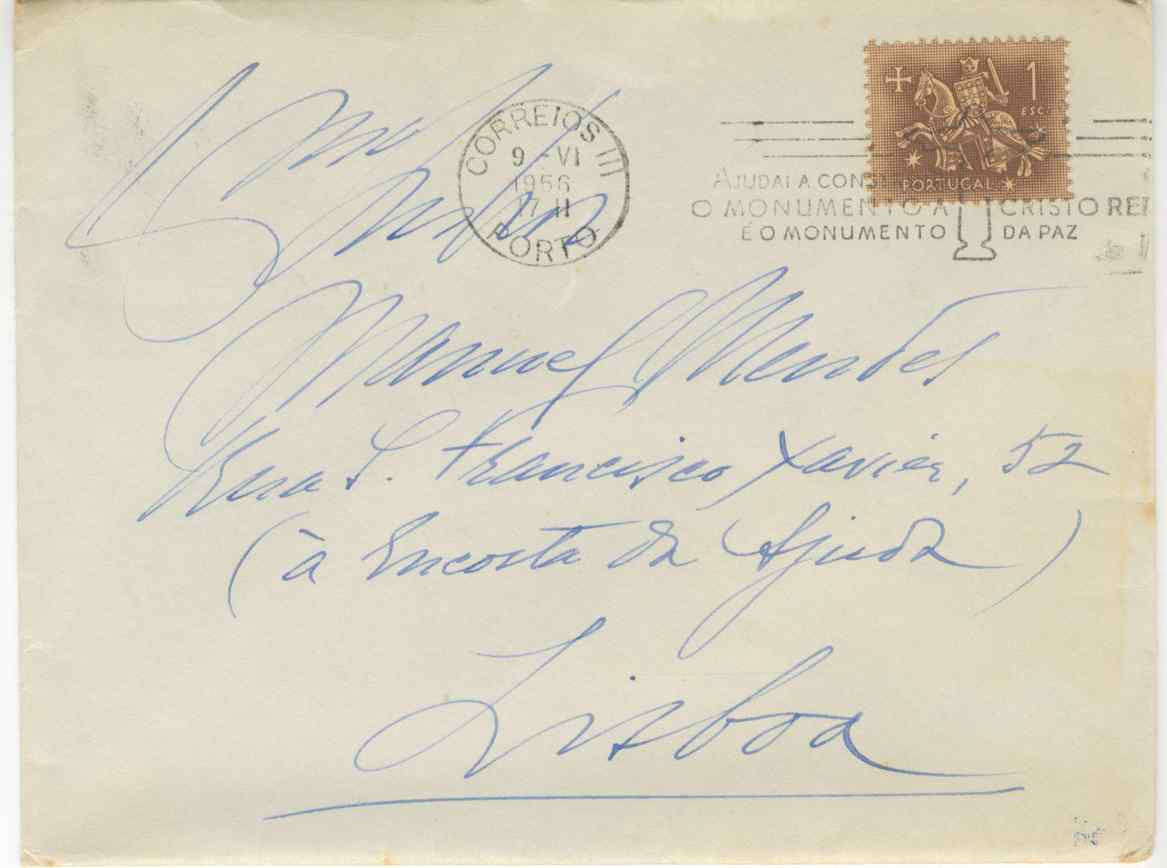 Exmo
Senhor
CORREIOS III
9 - VI
1956
17 H
PORTO
1
ESC.
PORTUGAL
AJUDAI A CONS
O MONUMENTO A CRISTO REI
É O MONUMENTO DA PAZ
Manuel Mendes
Rua S. Francisco Xavier, 52
(à Encosta da Ajuda)
Lisboa